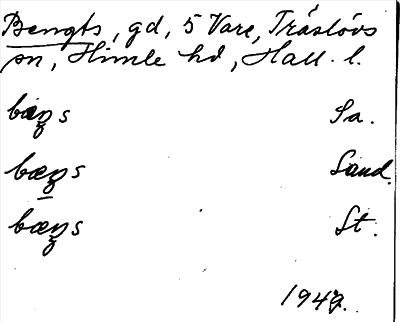 Bengts, gd, 5 Vare, Träslövs
sn, Himle hd, Hall. l.
bæŋs Sa.
bæŋs Sand.
bæŋs St.
1949.